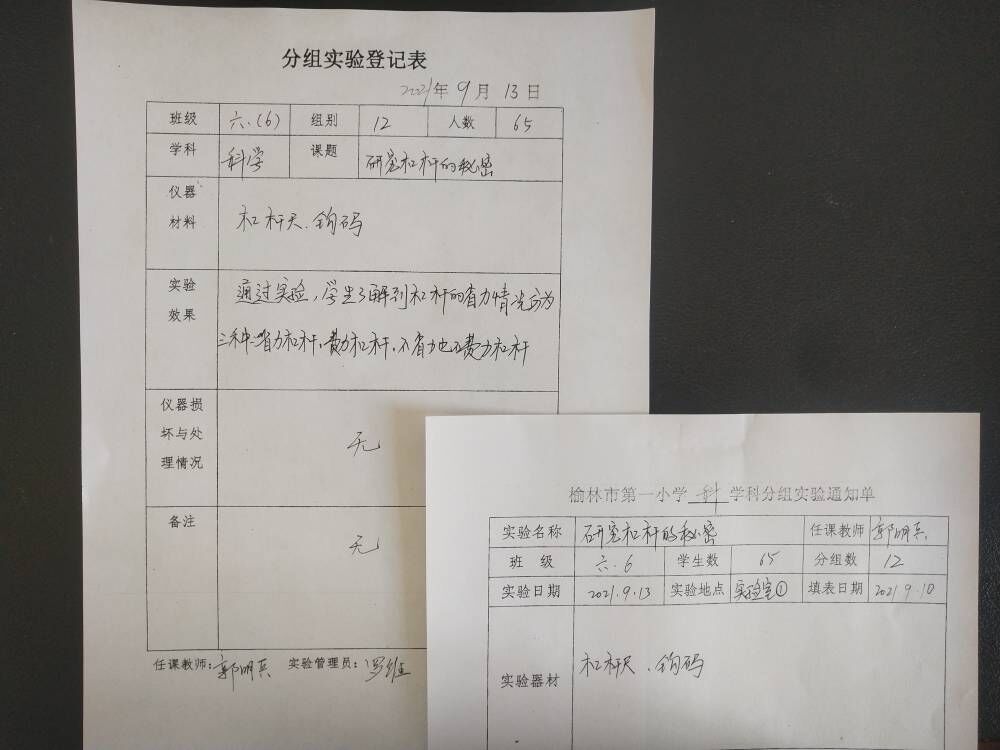 分组实验登记表
2021年 9月 13日
班级 六.(6) 组别 12 人数 65
学科 科学 课题 研究杠杆的秘密
仪器
材料
杠杆尺.钩码
实验
效果
通过实验,学生了解到杠杆的省力情况分为
三种:省力杠杆,费力杠杆,不省力也不费力杠杆
仪器损
坏与处
理情况
无
备注
无
任课教师:郭明兵 实验管理员:罗维
榆林市第一小学 科 学科分组实验通知单
实验名称 研究杠杆的秘密 任课教师 郭明兵
班 级 六.6 学生数 65 分组数 12
实验日期 2021.9.13 实验地点 实验室① 填表日期 2021.9.10
实验器材 杠杆尺.钩码